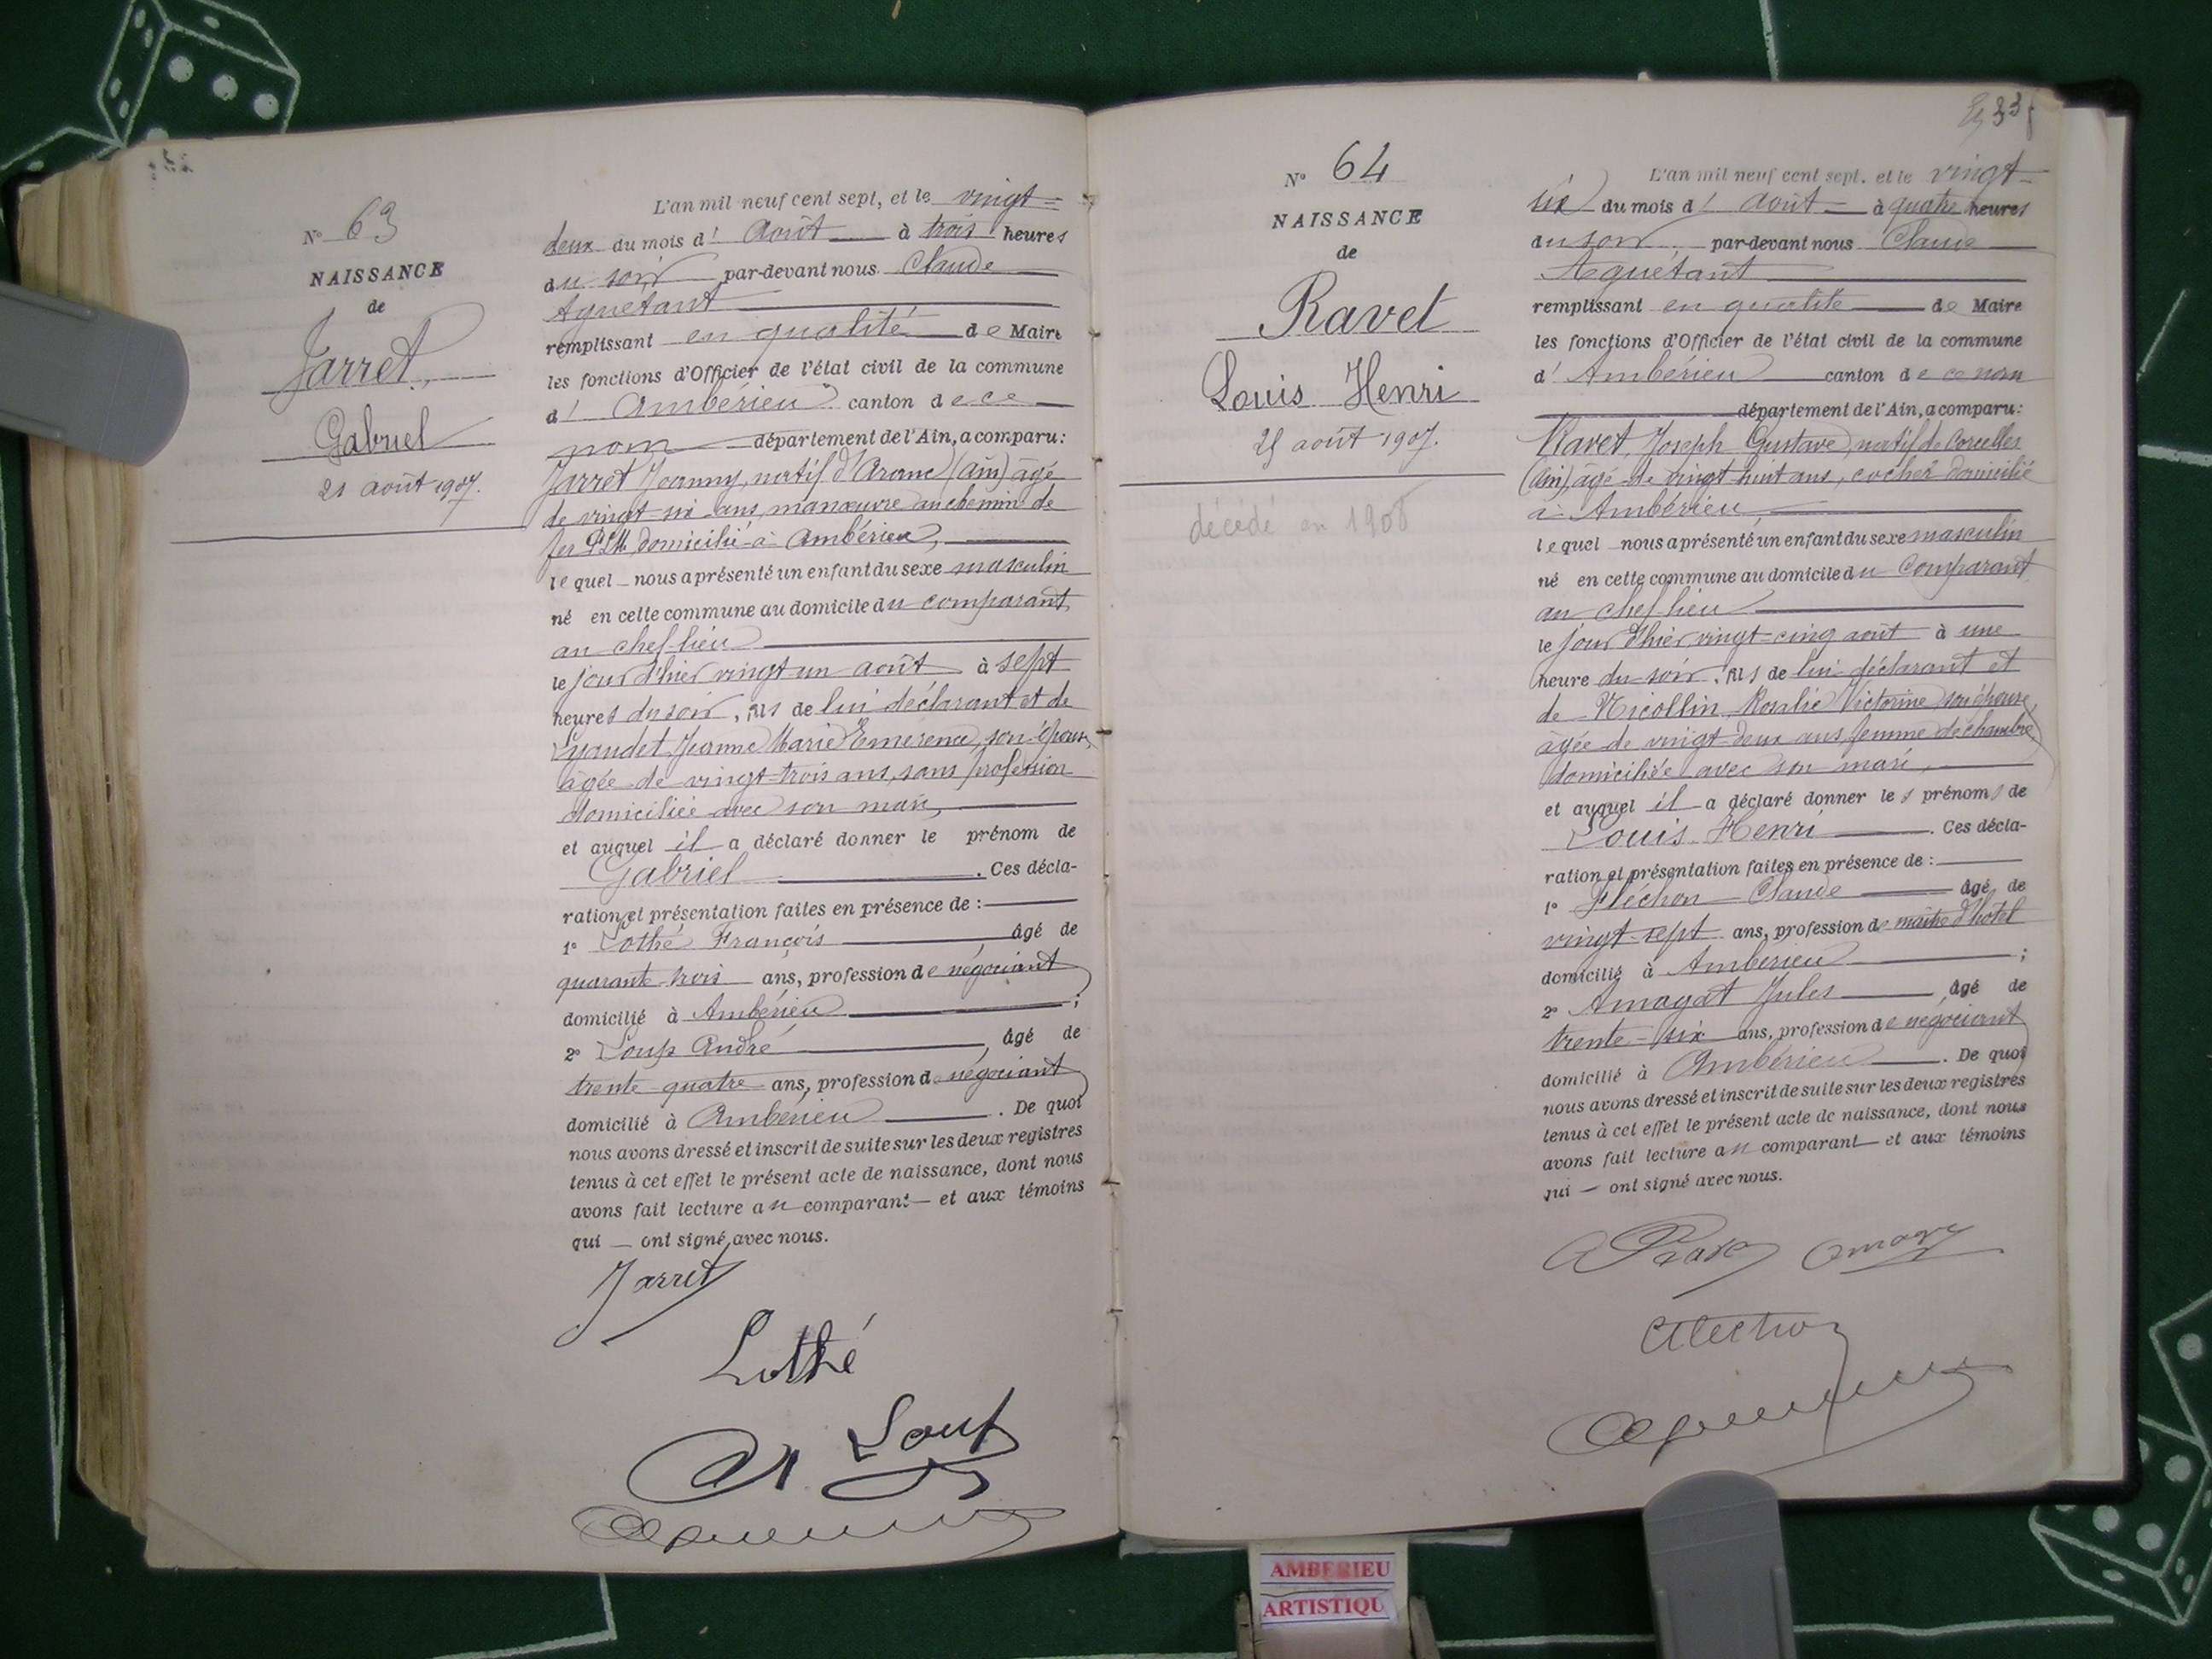 N° 63
NAISSANCE
de
Jarret
Gabriel
21 août 1907.
L'an mil neuf cent sept, et le vingt=
deux du mois d' Août à trois heures
du soir par-devant nous Claude
Aguétant
remplissant en qualité de Maire
les fonctions d'Officier de l'état civil de la commune
d' Ambérieu canton de ce
nom département de l'Ain, a comparu:
Jarret Joanny, natif d'Aranc (Ain) âgé
de vingt-six ans, manœuvre au chemin de
fer PLM, domicilié à Ambérieu,
lequel nous a présenté un enfant du sexe masculin
né en cette commune au domicile du comparant
au chef-lieu
le jour d'hier vingt un août à sept
heures du soir, fils de lui déclarant et de
Jeanne Marie son épouse,
âgée de vingt-trois ans, sans profession
domiciliée avec son mari,
et auquel il a déclaré donner le prénom de
Gabriel. Ces décla-
ration et présentation faites en présence de :
1° Lothé François âgé de
quarante-trois ans, profession de négociant
domicilié à Ambérieu ;
2° Loup André, âgé de
trente quatre ans, profession de négociant
domicilié à Ambérieu. De quoi
nous avons dressé et inscrit de suite sur les deux registres
tenus à cet effet le présent acte de naissance, dont nous
avons fait lecture au comparant et aux témoins
qui — ont signé avec nous.
Jarret
Lothé
Loup
N° 64
NAISSANCE
de
Ravet
Louis Henri
25 août 1907.
décédé en 1908
L'an mil neuf cent sept. et le vingt-
six du mois d' Août à quatre heures
du soir par-devant nous Claude
Aguétant
remplissant en qualité de Maire
les fonctions d'Officier de l'état civil de la commune
d' Ambérieu canton de ce nom
département de l'Ain, a comparu:
Ravet, Joseph Gustave, natif de Corcelles
(Ain), âgé de vingt-huit ans, cocher domicilié
à Ambérieu
lequel nous a présenté un enfant du sexe masculin
né en cette commune au domicile du Comparant
au chef lieu
le jour d'hier vingt-cinq août à une
heure du soir, fils de lui déclarant et
de Nicollin Rosalie Victorine son épouse,
âgée de vingt-deux ans, femme de chambre,
domiciliée avec son mari,
et auquel il a déclaré donner les prénoms de
Louis Henri. Ces décla-
ration et présentation faites en présence de :
1° Fléchon Claude âgé de
vingt-sept ans, profession de maître d'hôtel
domicilié à Ambérieu ;
2° Amagat Jules, âgé de
trente-six ans, profession de négociant
domicilié à Ambérieu. De quoi
nous avons dressé et inscrit de suite sur les deux registres
tenus à cet effet le présent acte de naissance, dont nous
avons fait lecture au comparant et aux témoins
qui — ont signé avec nous.
AMBERIEU
ARTISTIQU